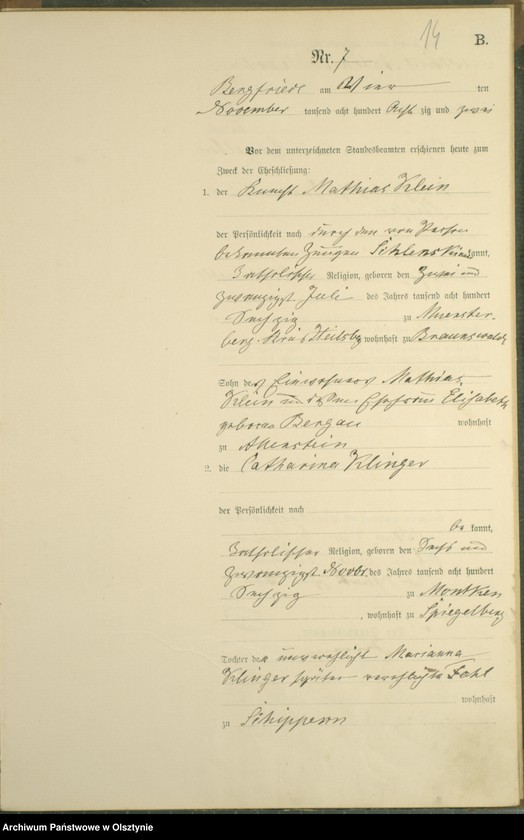 14
B.
Nr. 7
Bergfriede am Vier ten
November tausend acht hundert Acht zig und zwei
Vor dem unterzeichneten Standesbeamten erschienen heute zum
Zweck der Eheschließung:
1. der Knecht Mathias Klein
der Persönlichkeit nach durch den von Person
bekannten Zeugen kannt,
katholischer Religion, geboren den zwei und
zwanzigst Juli des Jahres tausend acht hundert
Sechzig zu Münster-
berg Kreis Heilsbg wohnhaft zu Braunswalde
Sohn des Einwohners Mathias
Klein und dessen Ehefrau Elisabeth
geborene Bergau wohnhaft
zu Allenstein
2. die Catharina Klinger
der Persönlichkeit nach
be kannt,
katholischer Religion, geboren den Sechs und
zwanzigst Novbr. des Jahres tausend acht hundert
Sechzig zu Montken
, wohnhaft zu Spiegelberg
Tochter der unverehelicht Marianna
Klinger später verehelichte Fahl
wohnhaft
zu Schippern
Archiwum Państwowe w Olsztynie